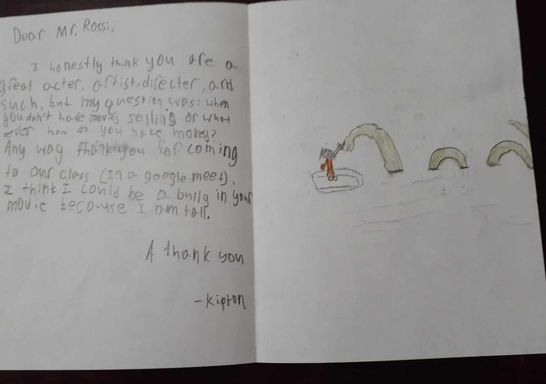 Dear Mr. Rossi,
I honestly think you are a
great acter, artist, directer, and
such, but my question was: when
you don't have movies selling or what
ever how do you make money?
Any way thank you for coming
to our class (In a google meet).
I think I could be a bully in your
movie because I am tall.
A thank you
-Kipton